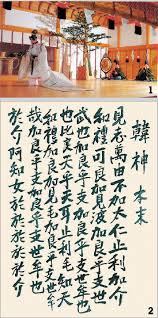 1
韓神 本末
見志萬由不加太仁止利加介
和禮可良加見波加良乎支世
武也加良乎支加良乎支世牟
也比良天乎天耳止利毛知天
和禮加良加見毛加良乎支世牟
哉加良乎支加良乎支世牟也
於介阿知女於於於於介
2